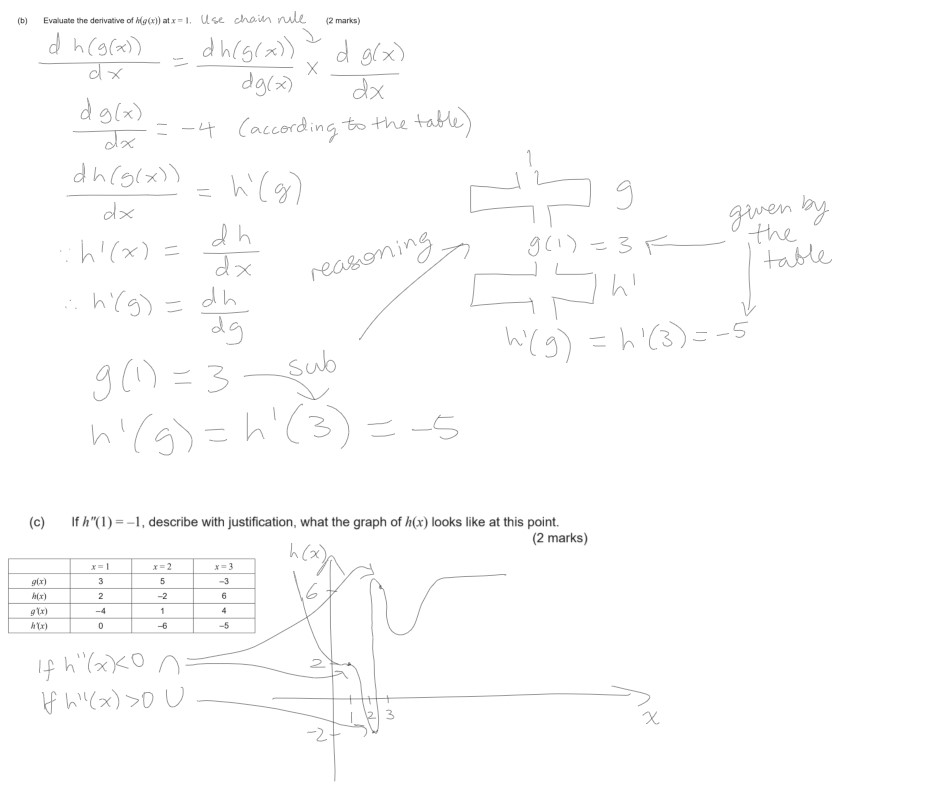 (b) Evaluate the derivative of h(g(x)) at x = 1. Use chain rule (2 marks)
d h(g(x)) / dx = d h(g(x)) / dg(x) × d g(x) / dx
d g(x) / dx = -4 (according to the table)
d h(g(x)) / dx = h'(g)
∵ h'(x) = dh / dx
∴ h'(g) = dh / dg
g(1) = 3 sub
h'(g) = h'(3) = -5
reasoning
1
g
g(1) = 3
given by
the
table
h'
h'(g) = h'(3) = -5
(c) If h″(1) = –1, describe with justification, what the graph of h(x) looks like at this point.
(2 marks)
x = 1 x = 2 x = 3
g(x) 3 5 –3
h(x) 2 –2 6
g'(x) –4 1 4
h'(x) 0 –6 –5
If h''(x) < 0 ∩
If h''(x) > 0 ∪
h(x)
6
2
1 2 3
-2
x